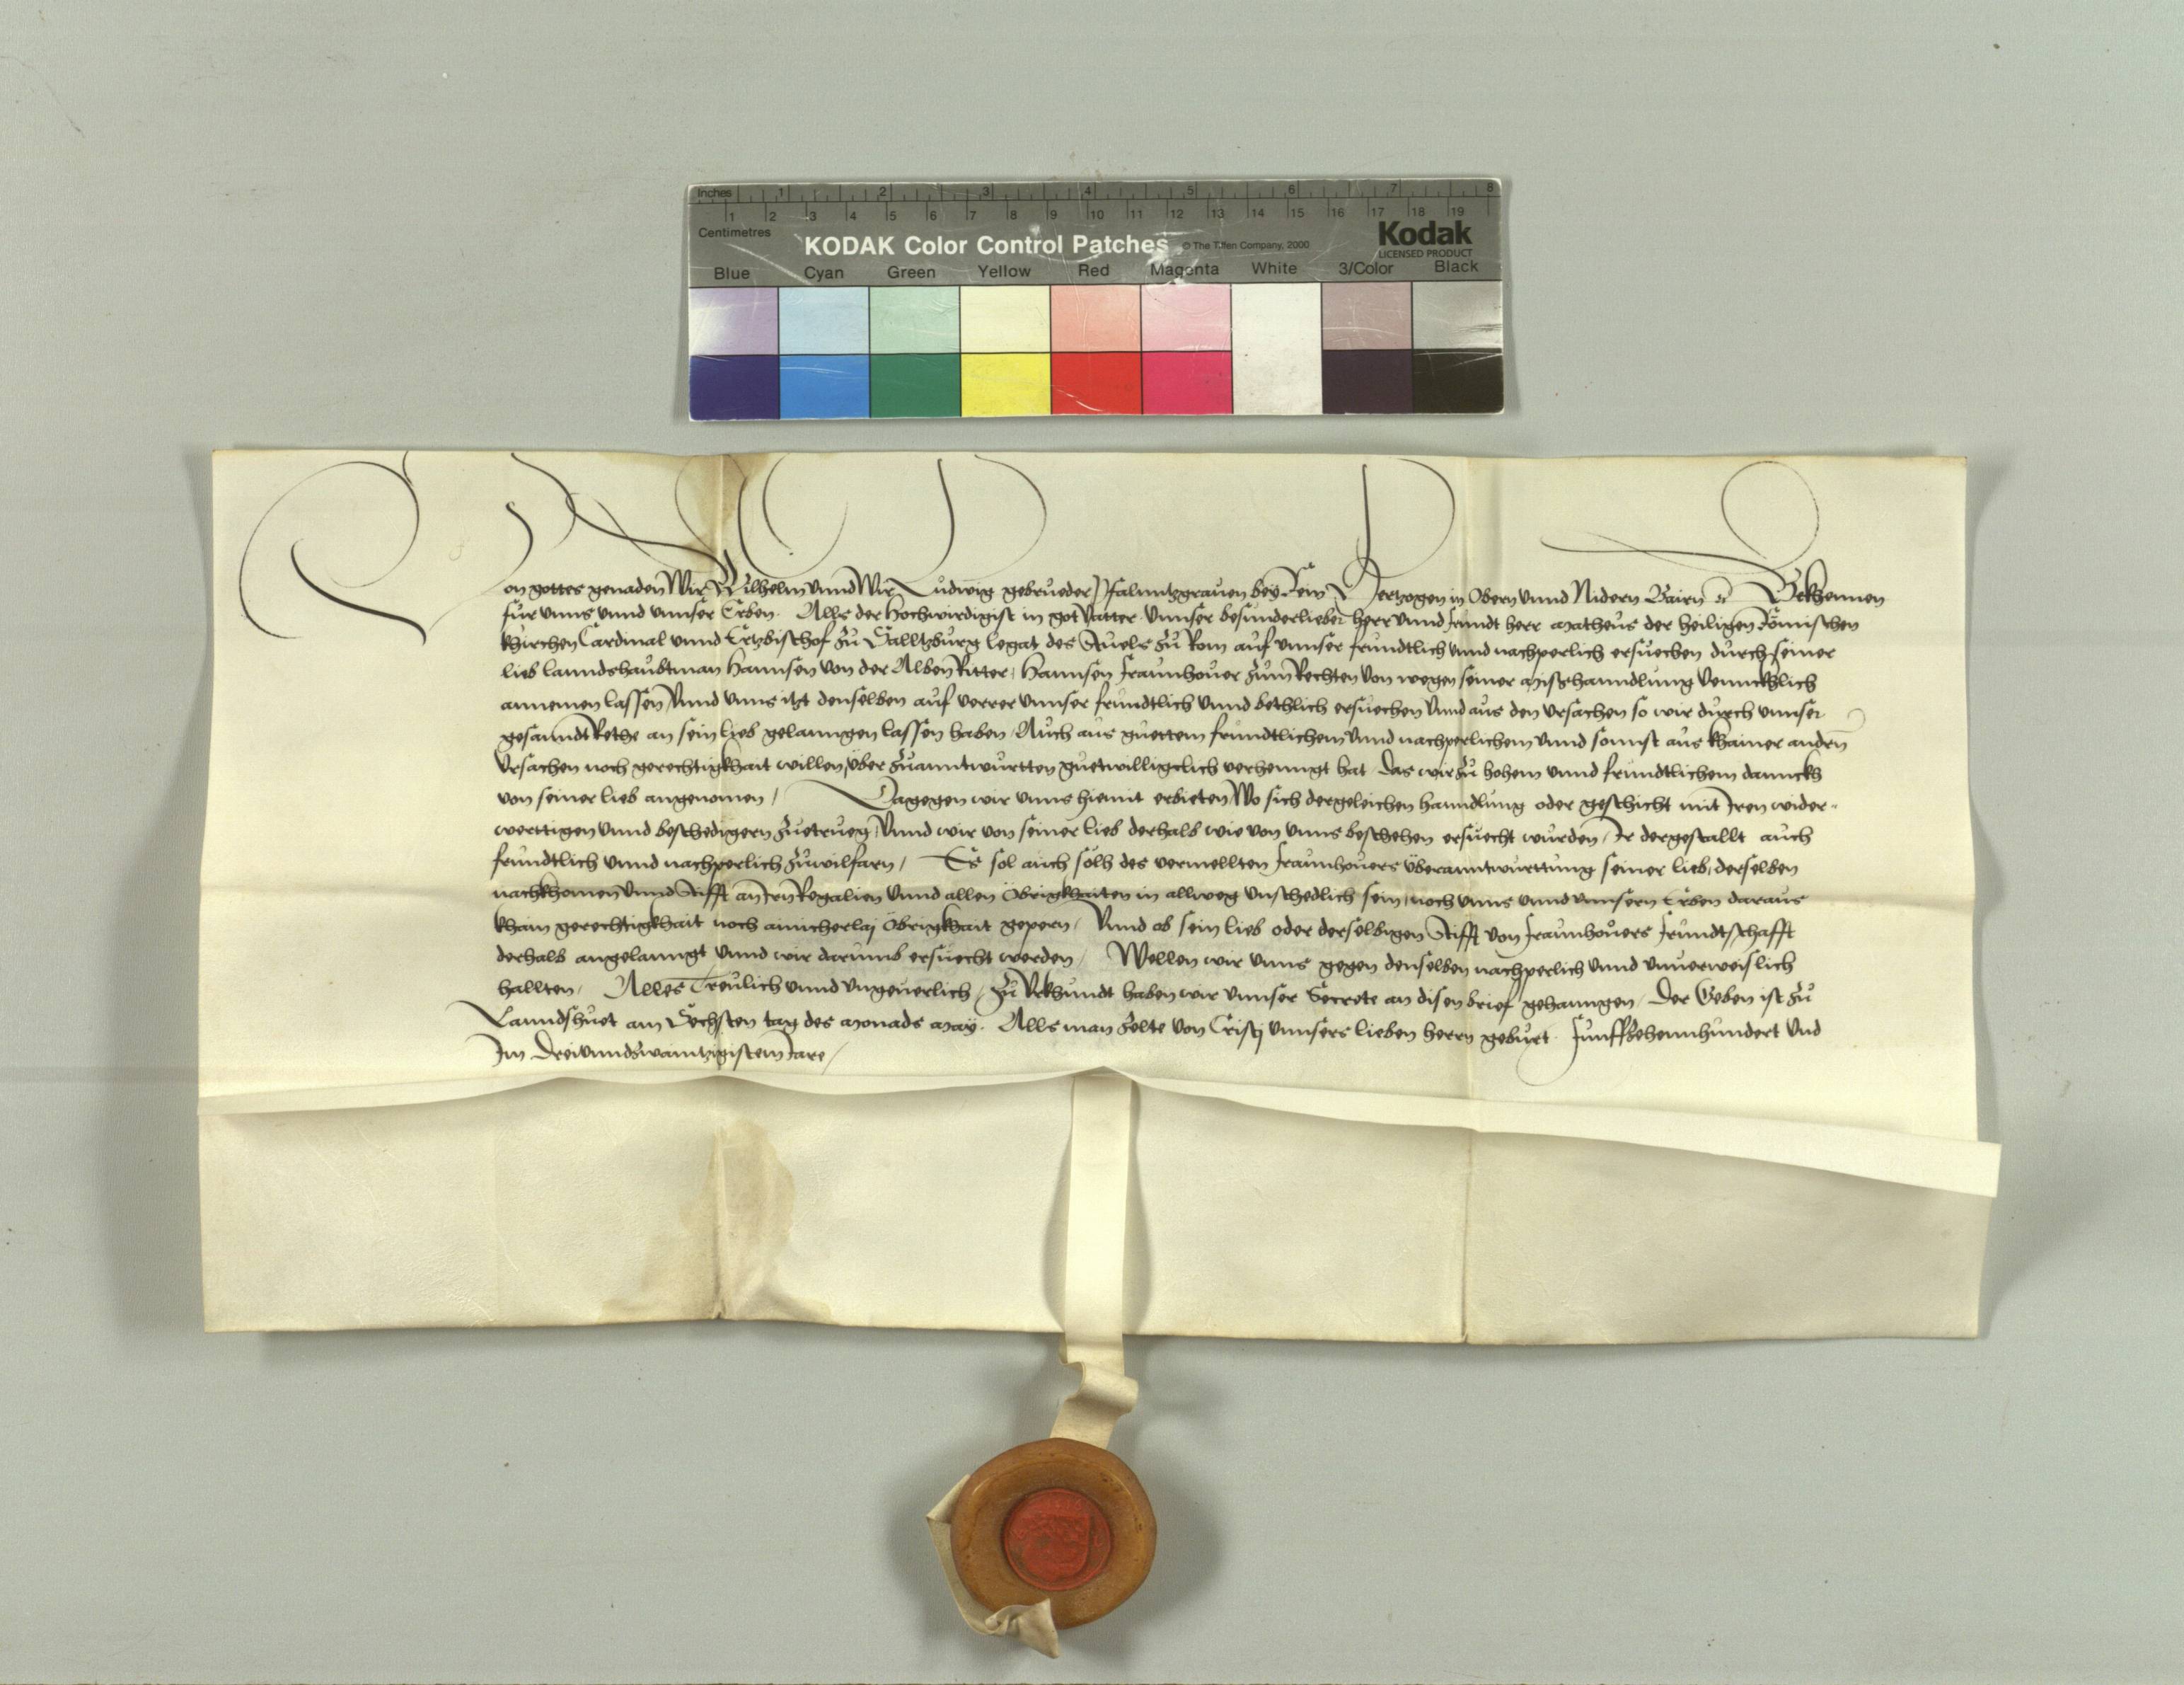 Inches 1 2 3 4 5 6 7 8
1 2 3 4 5 6 7 8 9 10 11 12 13 14 15 16 17 18 19
Centimetres
KODAK Color Control Patches © The Tiffen Company, 2000 Kodak
LICENSED PRODUCT
Blue Cyan Green Yellow Red Magenta White 3/Color Black
Von gottes genaden Wir Wilhelm Unnd Wir Ludwig gebrueder Pfalnntzgrauen bey Rein Hertzogen in Obern Unnd Nidern Bairn Bekhennen
für unns unnd unnser Erben. Alls der Hochwirdigist in got Vatter unnser besunderlieber herr unnd frundt herr Matheus der heiligen Römischen
khirchen Cardinal unnd Ertzbischof zu Salltzburg Legat des Stuels zu Rom auf unnser frundtlich unnd nachperlich ersuechen durch seiner
lieb lanndshaubtman Hannsen von der Alben Ritter, Hannsen Fraunhouer zum Rechten von wegen seiner Misshanndlung vennckhlich
annemen lassen Unnd unns itzt denselben auf verrer unnser frundtlich unnd bethlich ersuechen Unnd aus den ursachen so wir durch unnser
gesanndt Rethe an sein lieb gelanngen lassen haben, Auch aus guettem frundtlichem unnd nachperlichem unnd sonnst aus khainer andern
Ursachen noch gerechtigkhait willen, über zuanntwurtten guetwilligclich verhenngt hat Das wir zu hohem unnd frundtlichem dannckh
von seiner lieb angenomen, Dagegen wir unns hiemit erbieten Wo sich dergeleichen hanndlung oder geschicht mit Iren wider-
werttigen unnd beschedigern zuetrueg, Unnd wir von seiner lieb derhalb wie von unns beschehen ersuecht wurden, Ir dergestallt auch
frundtlich unnd nachperlich zuwilfarn, Es sol auch solh des vermellten Fraunhouers überanntwurttung seiner lieb, derselben
nachkhomen unnd Stifft an Irn Regalien unnd allen Obrigkhaiten in allweg unschedlich sein, noch unns unnd unnsern Erben daraus
khain gerechtigkhait noch ainicherlaj Obrigkhait gepern, Unnd ob sein lieb oder derselbigen Stifft von Fraunhouers Frundtschafft
derhalb angelanngt unnd wir darumb ersuecht werden, Wellen wir unns gegen denselben nachperlich unnd unuerweislich
hallten, Alles Treulich unnd ungeuerlich, Zu Urkhundt haben wir unnser Secrete an disen brief gehanngen, Der Geben ist zu
Lanndshuet am Sechsten tag des Monads May. Alls man zelte von Cristj unnsers lieben herrn geburt. Funffzehennhundert Und
Im Dreiunndzwaintzigistem Iare,